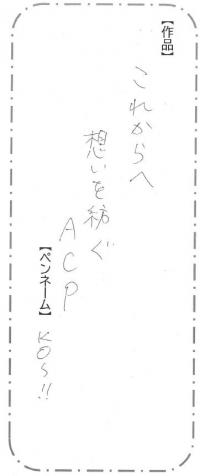 【作品】
これからへ
想いを紡ぐ
ACP
【ペンネーム】 KOS!!